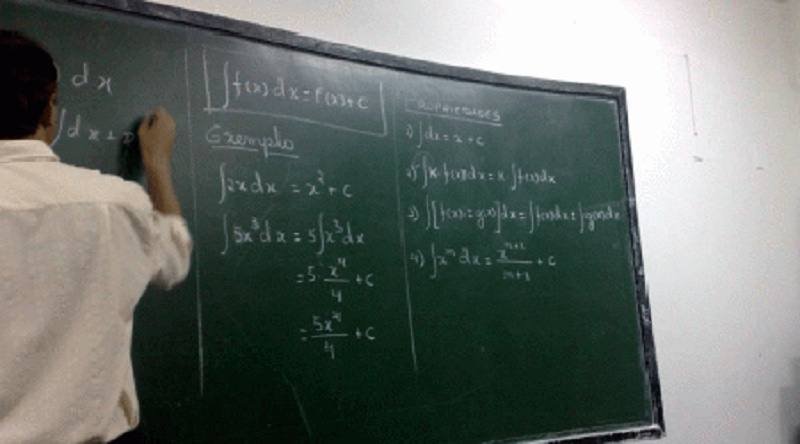 dx
∫dx +
∫f(x) dx = F(x) + C
Exemplo
∫2x dx = x² + C
∫5x³ dx = 5∫x³ dx
= 5 · x⁴/4 + C
= 5x⁴/4 + C
PROPRIEDADES
1) ∫dx = x + C
2) ∫K · f(x) dx = K ∫f(x) dx
3) ∫[f(x) ± g(x)] dx = ∫f(x) dx ± ∫g(x) dx
4) ∫xⁿ dx = xⁿ⁺¹/n+1 + C